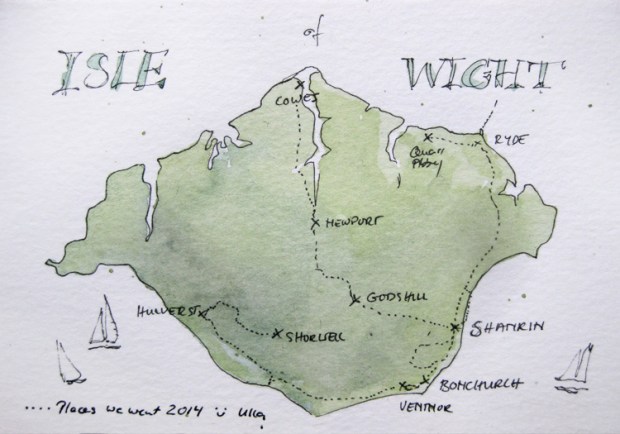 ISLE of WIGHT
COWES
RYDE
Quarr
Abbey
NEWPORT
GODSHILL
HULVERST
SHORWELL
SHANKLIN
BONCHURCH
VENTNOR
.... Places we went 2014 Ulla